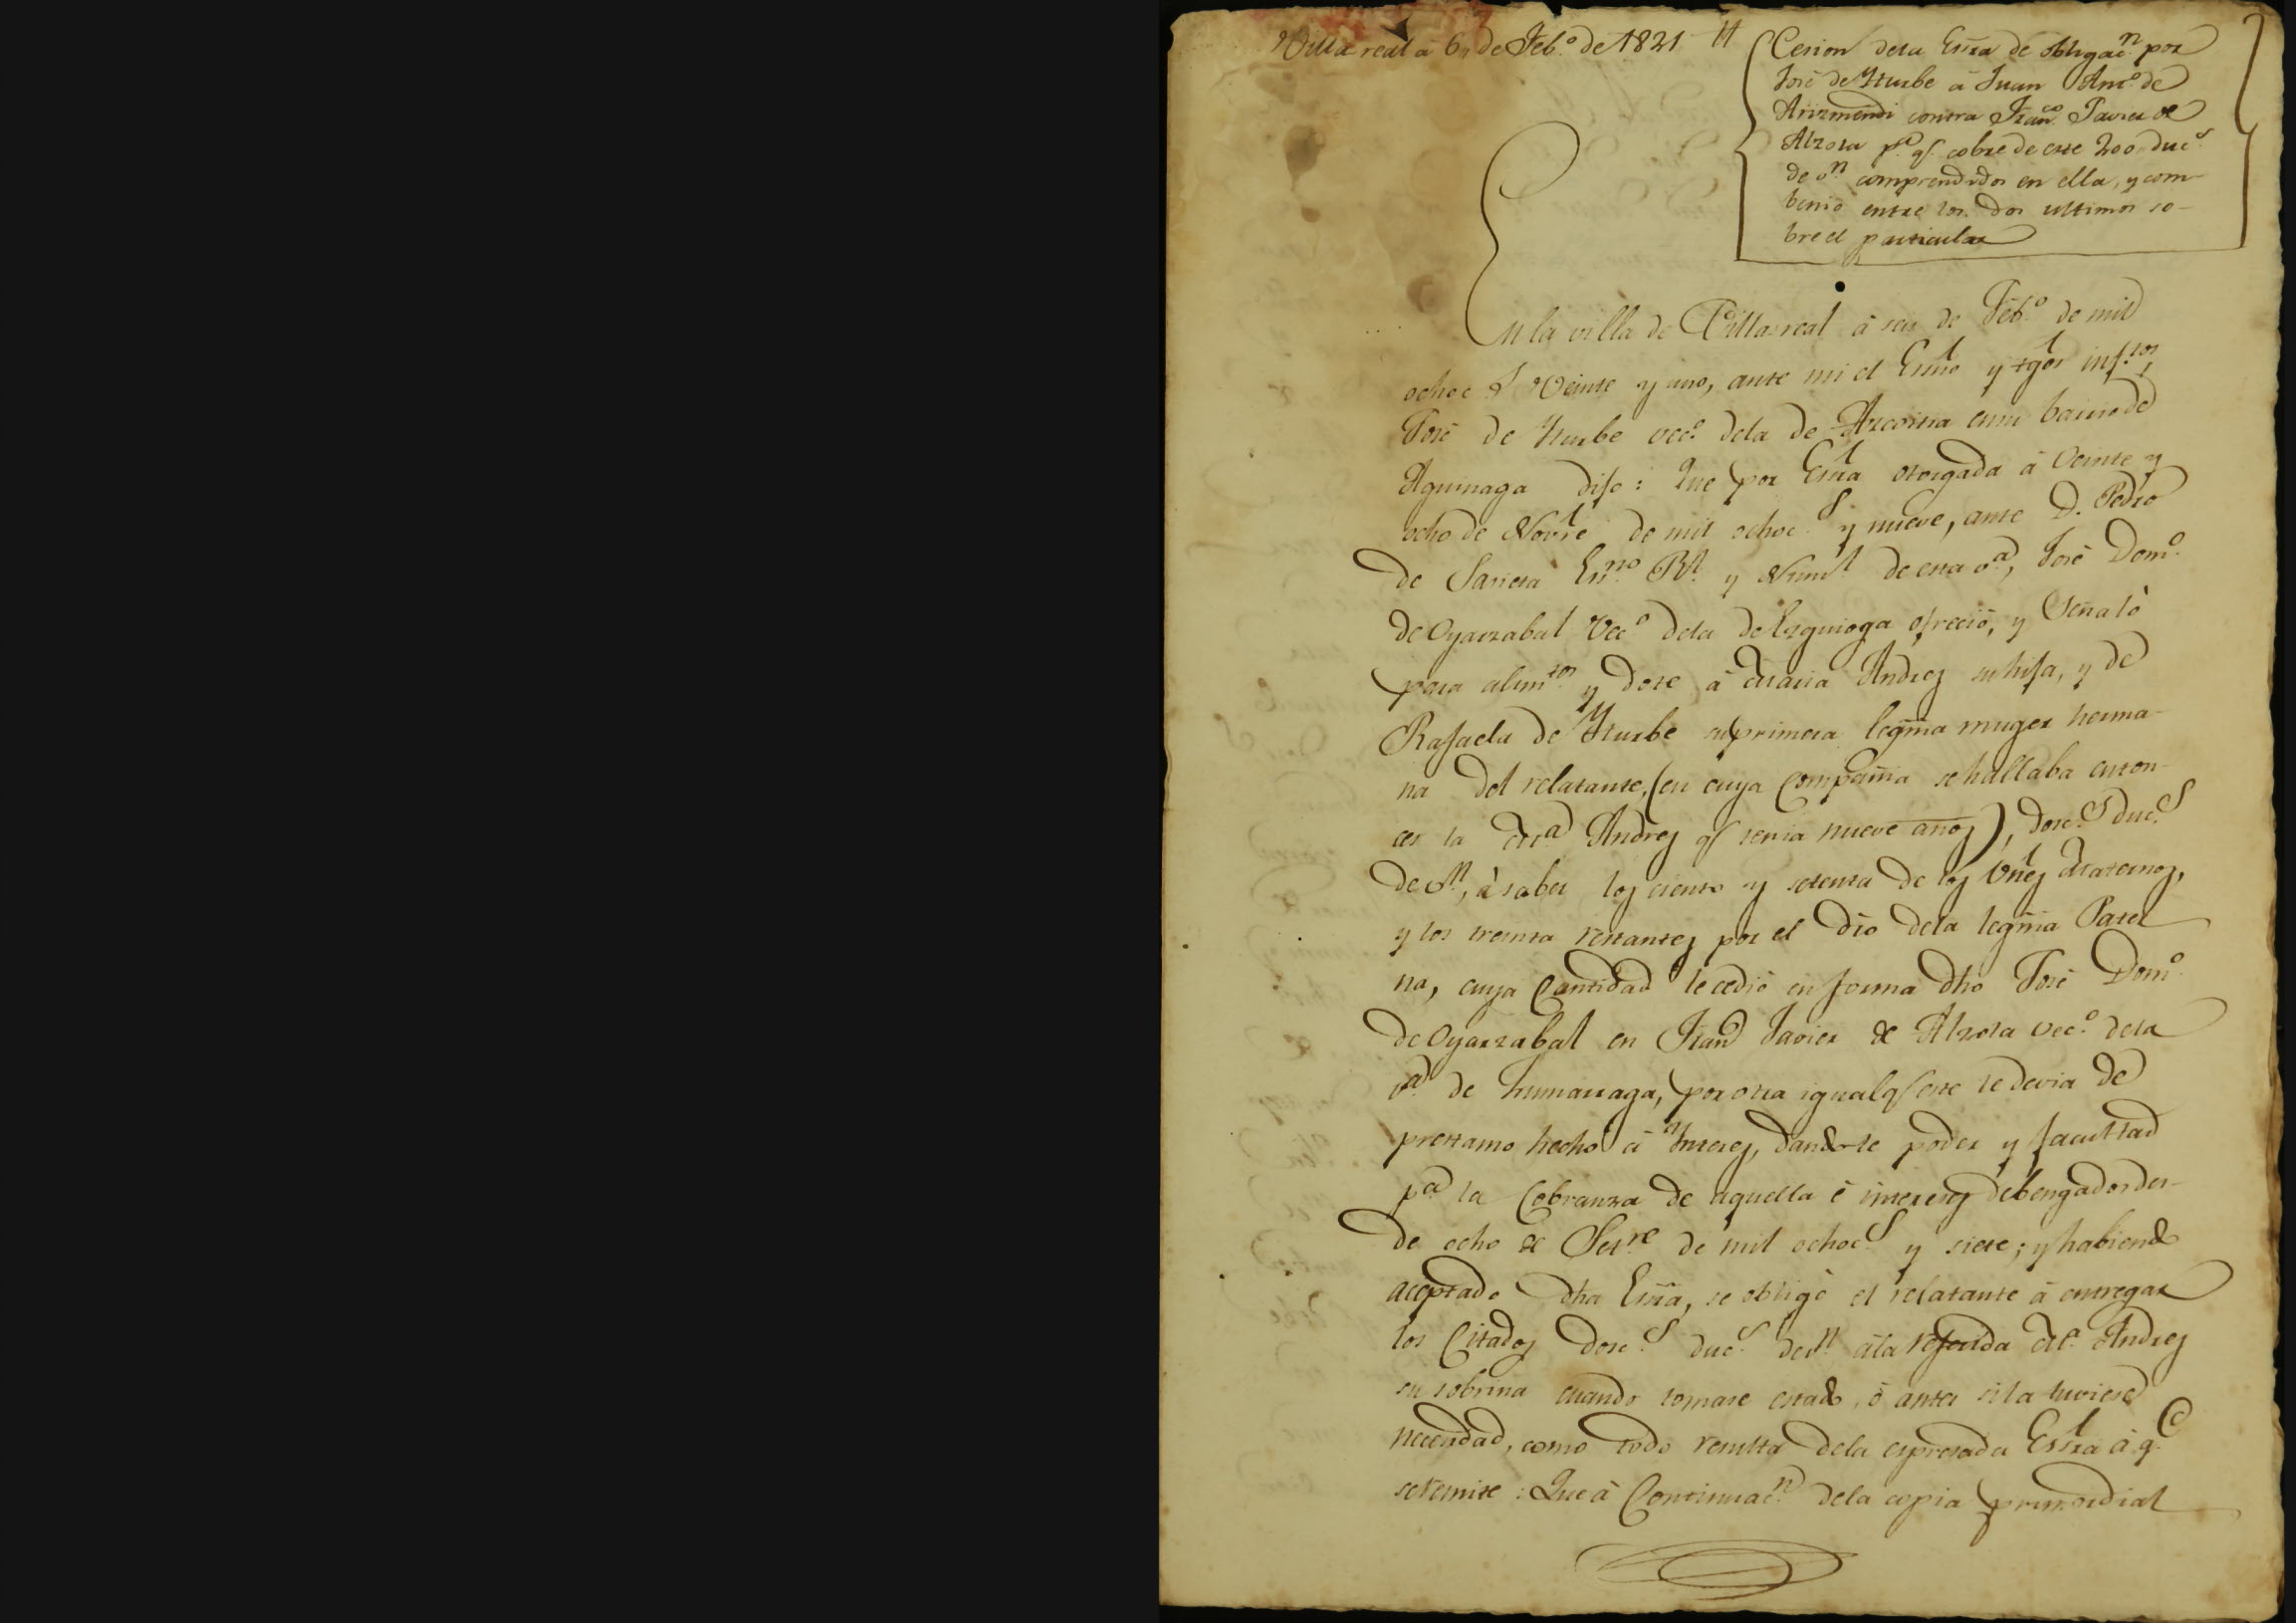 Villa real á 6, de Feb.º de 1821 //
Cesion dela Esrra de obligac.n por
José de Yturbe á Juan Ant.º de
Arizmendi contra Fran.co Javier de
Alzola p.a q.e cobre de este 200 duc.s
de v.n comprendidos en ella, y com-
benio entre los dos ultimos so-
bre el particular
En la villa de Villarreal á seis de Feb.º de mil
ochoc.s Veinte y uno, ante mi el Esno y tgos inf.tos,
José de Yturbe vec.º dela de Azcoitia en su barrio de
Aguinaga dijo: Que por Esrra otorgada á Veinte y
ocho de Novre de mil ochoc.s y nueve, ante D. Pedro
de Sarieta Es.no R.l y Num.l de esta v.a, José Dom.º
de Oyarzabal Vec.º dela de Ezquioga ofreció, y Señaló
para alim.tos y dote á Maria Andrez su hija, y de
Rafaela de Yturbe su primera legma muger herma-
na del relatante, (en cuya Compañia se hallaba enton-
ces la M.a Andrez q.e tenia nueve años), dosc.s duc.s
de v.n, á saber los ciento y setenta de los Vnes Maternos,
y los treinta restantes por el dro dela legma Pater
na, cuya Cantidad le cedió en forma dho José Dom.º
de Oyarzabal en Fran.co Javier de Alzola vec.º dela
v.a de Zumarraga, por otra igual q.e este le devia de
prestamo hecho á Interes, dandole poder y facultad
p.a la Cobranza de aquella é intereses debengados des-
de ocho de Set.re de mil ochoc.s y siete; y habiendo
aceptado dha Esrra, se obligó el relatante á entregar
los Citados dosc.s duc.s de v.n á la referida M.a Andrez
su sobrina cuando tomare estado, ó antes si la tuviese
necesidad, como todo resulta dela espresada Esrra á q.e
se remite: Que á Continuac.n dela copia primordial